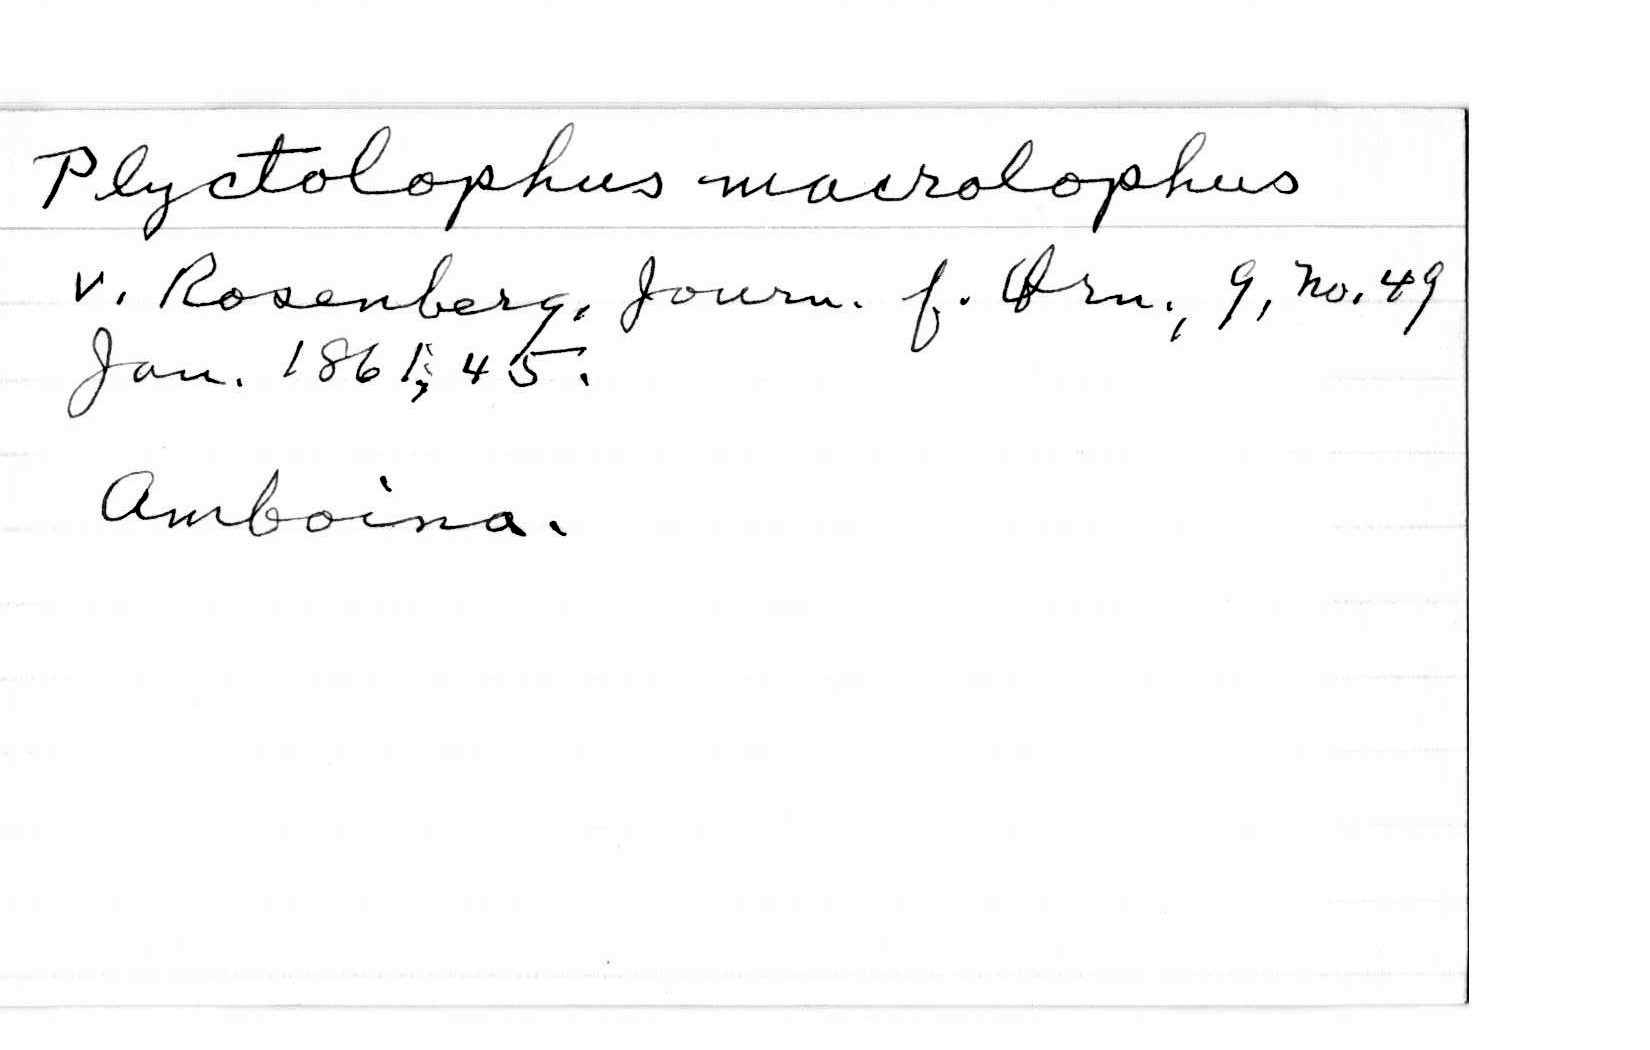 Plyctolophus macrolophus
v. Rosenberg, Journ. f. Orn., 9, no. 49
Jan. 1861, 45.
Amboina.